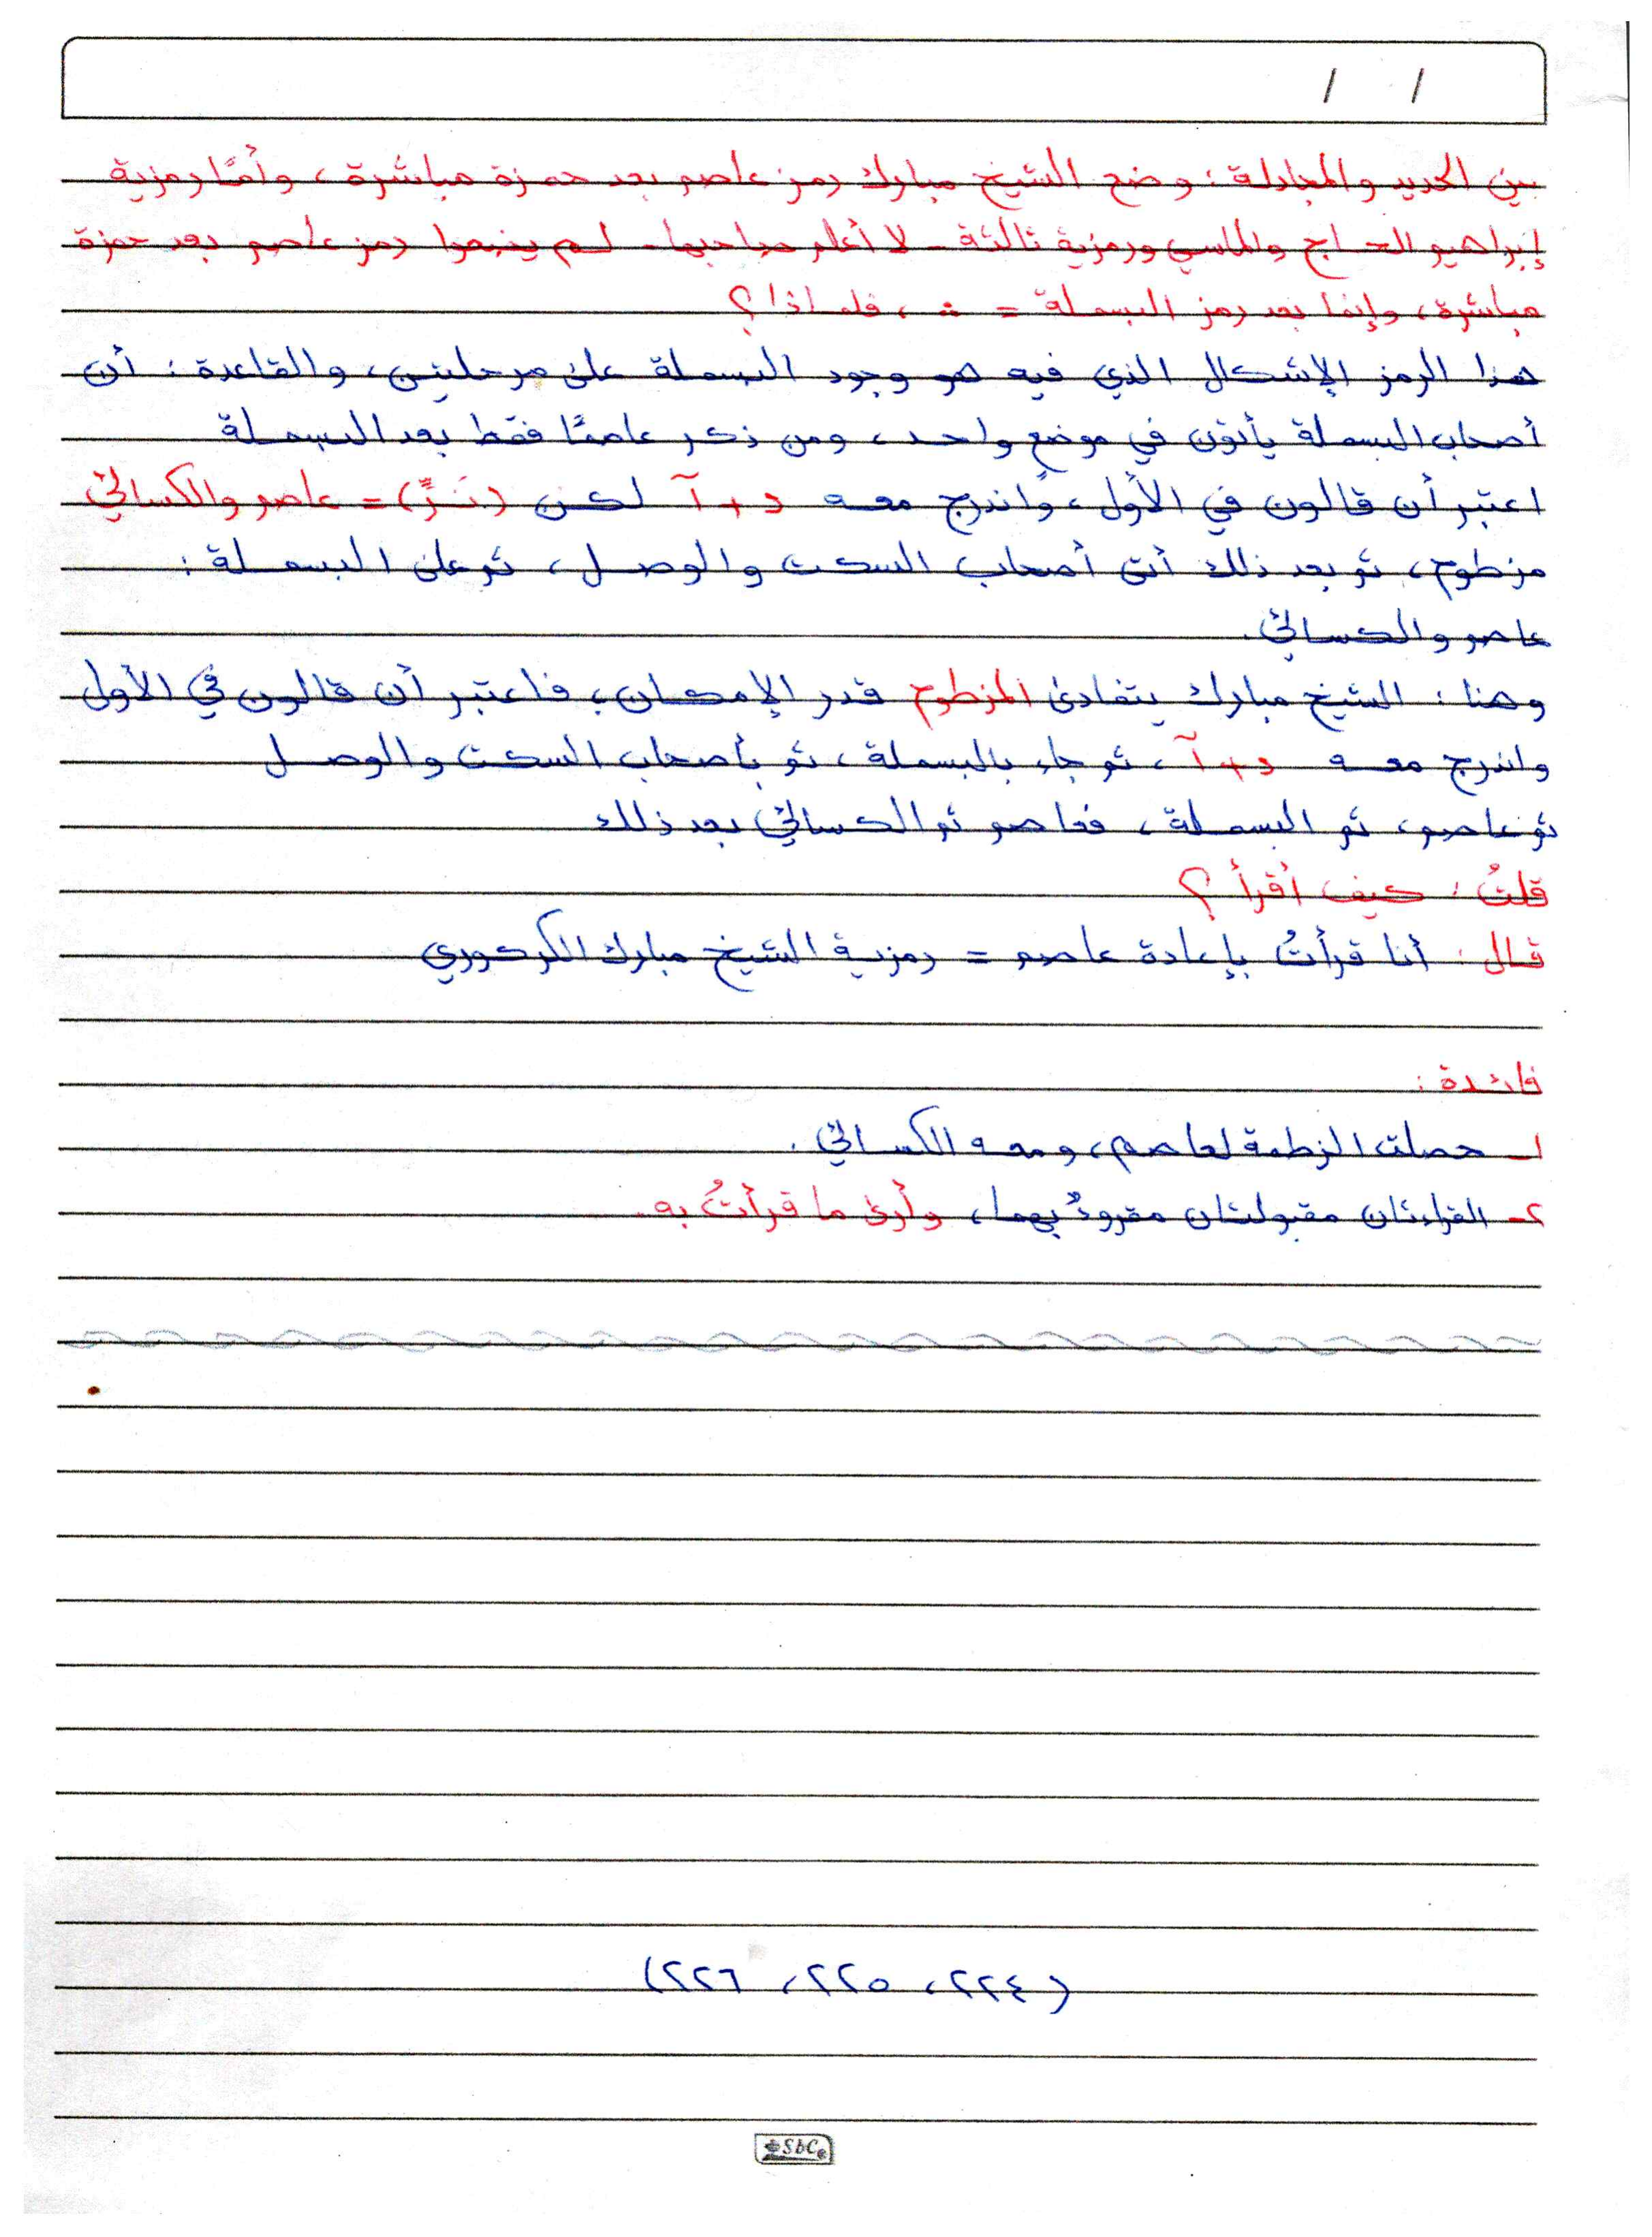 / /
بين الحديد والمجادلة : وضع الشيخ مبارك رمز عاصم بعد حمزة مباشرة ، وأمَّا رمزية
إبراهيم الحاج والماسي ورمزية ثالثة - لا أعلم صاحبها - لم يضعوا رمز عاصم بعد حمزة
مباشرة ، وإنما بعد رمز البسملة = ∴ ، فلماذا ؟
هذا الرمز الإشكال الذي فيه هو وجود البسملة على مرحلتين ، والقاعدة : أن
أصحاب البسملة يأتون في موضع واحد ، ومن ذكر عاصمًا فقط بعد البسملة
اعتبر أن قالون في الأول ، واندرج معه د + آ لكن (نَرٌّ) = عاصم والكسائي
مزطوم ، ثم بعد ذلك أتى أصحاب السكت والوصل ، ثم على البسملة :
عاصم والكسائي .
وهنا : الشيخ مبارك يتفادى المزطوم قدر الإمكان ، فاعتبر أن قالون في الأول
واندرج معه د + آ ، ثم جاء بالبسملة ، ثم بأصحاب السكت والوصل
ثم عاصم ، ثم البسملة ، فعاصم ثم الكسائي بعد ذلك
قلتُ : كيف أقرأ ؟
قال : أنا قرأتُ بإعادة عاصم = رمزية الشيخ مبارك الكركوري
فائدة :
١- حصلت الزطمة لعاصم ، ومعه الكسائي .
٢- القراءتان مقبولتان مقروءٌ بهما ، وأرى ما قرأتُ به .
( ٢٢٤ ، ٢٢٥ ، ٢٢٦ )
SbC